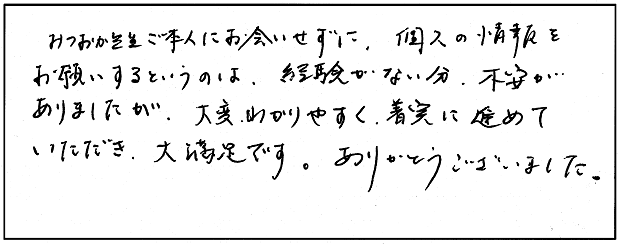 みつおか先生ご本人にお会いせずに、個人の情報を
お願いするというのは、経験がない分、不安が
ありましたが、大変わかりやすく、着実に進めて
いただき、大満足です。ありがとうございました。